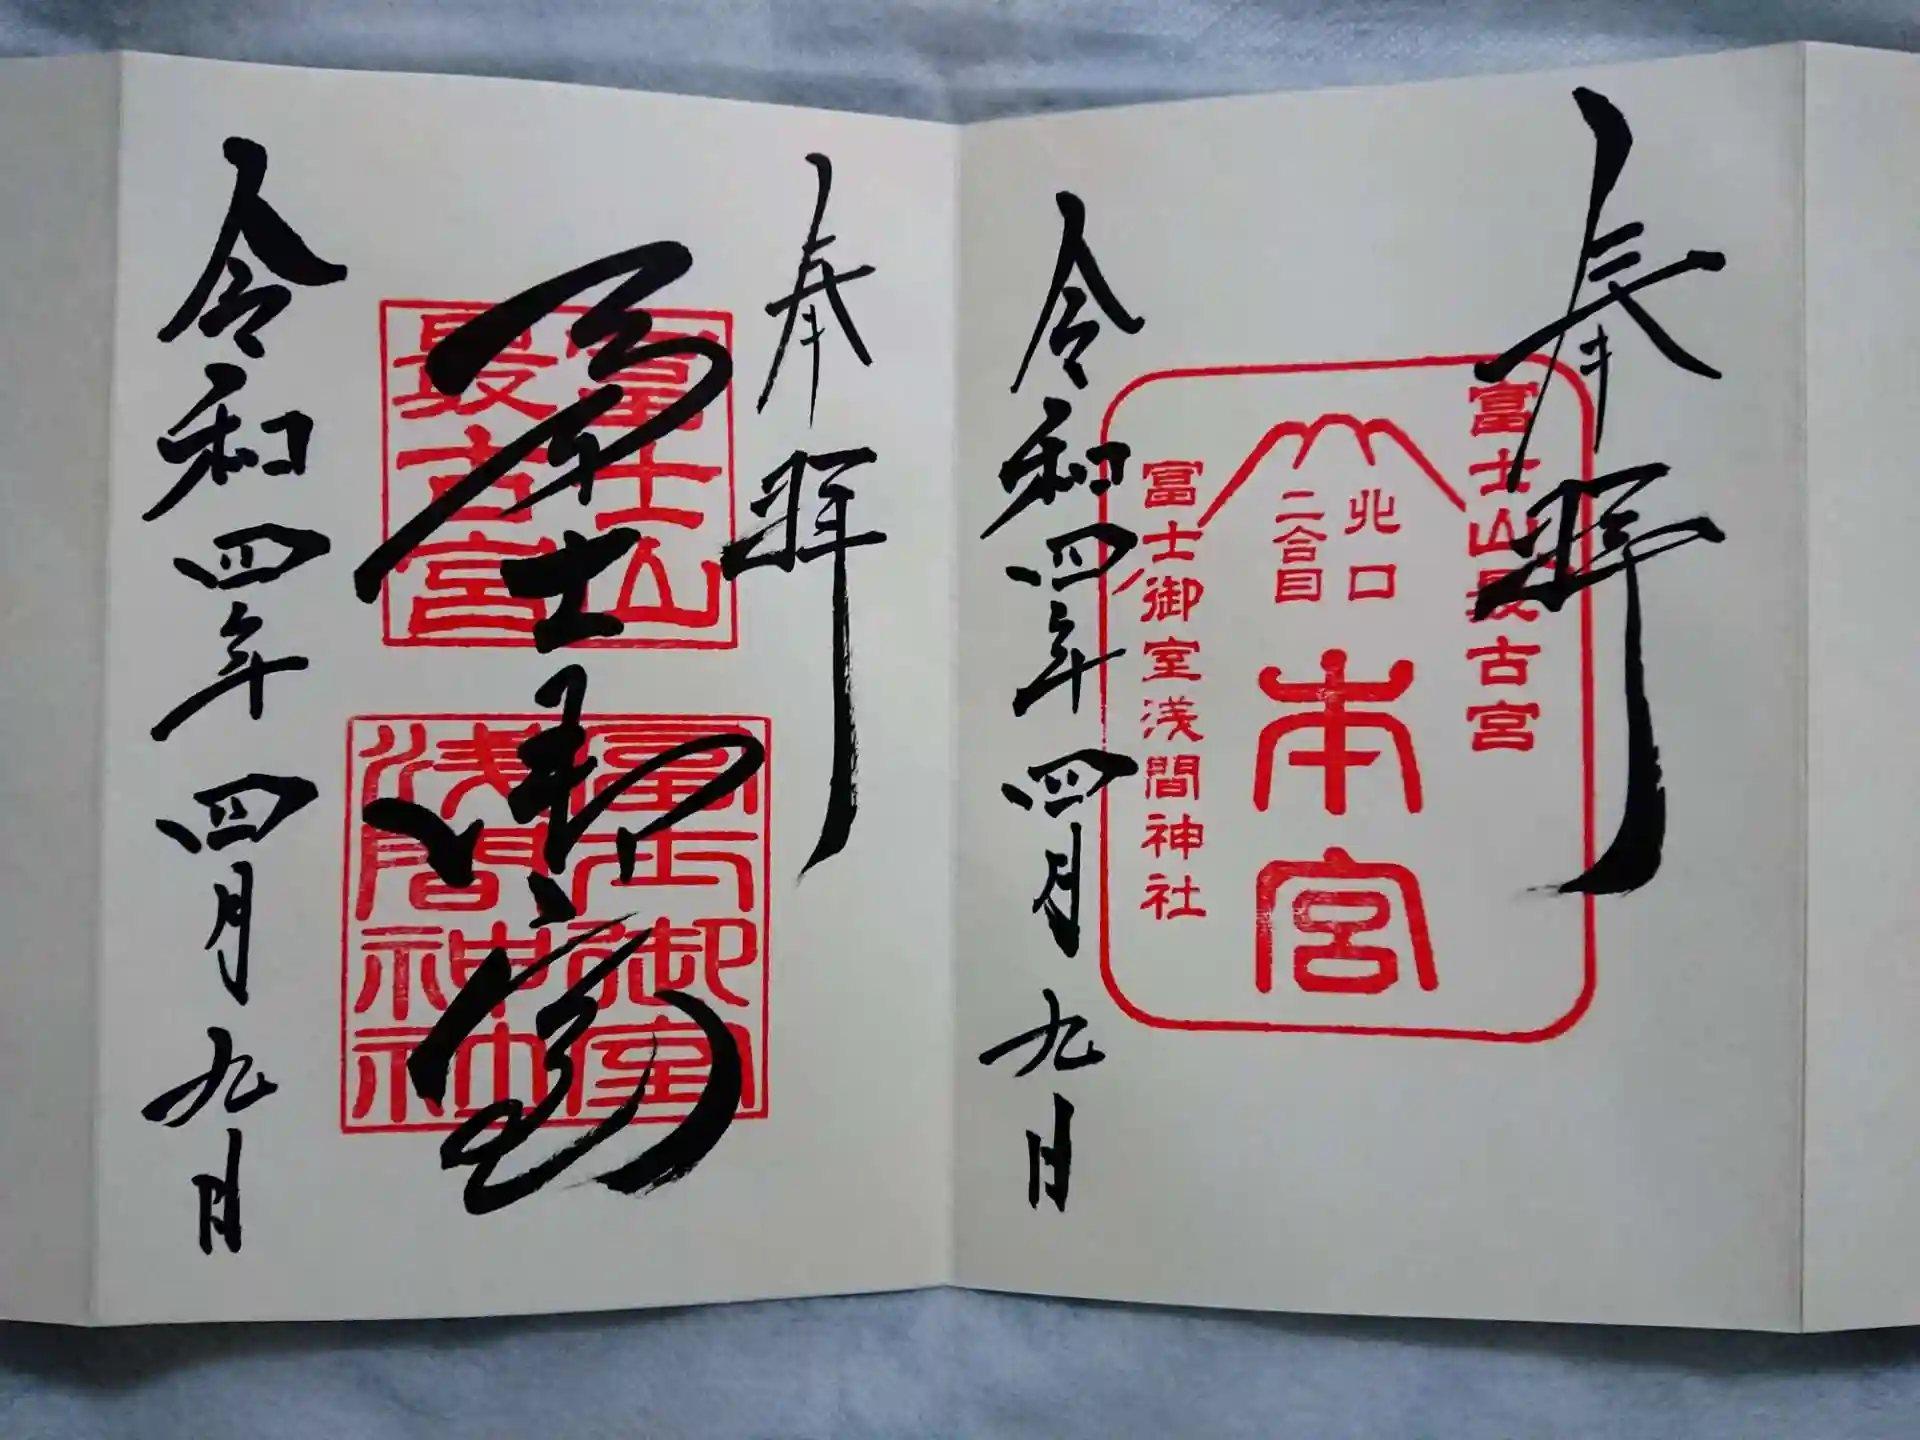 奉拝
富士山最古宮
北口
二合目
本宮
富士御室浅間神社
令和四年四月九日
奉拝
富士山
最古宮
冨士御室
浅間神社
冨士御室
令和四年四月九日